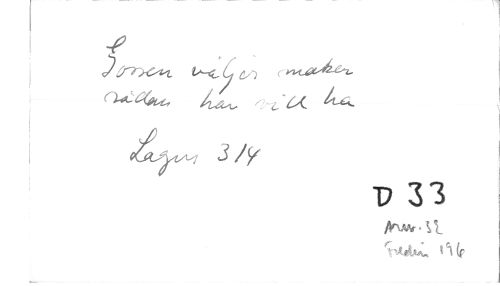 Gossen väljer maken
sådan han vill ha
Lagus 314
D 33
Arw. 32
196